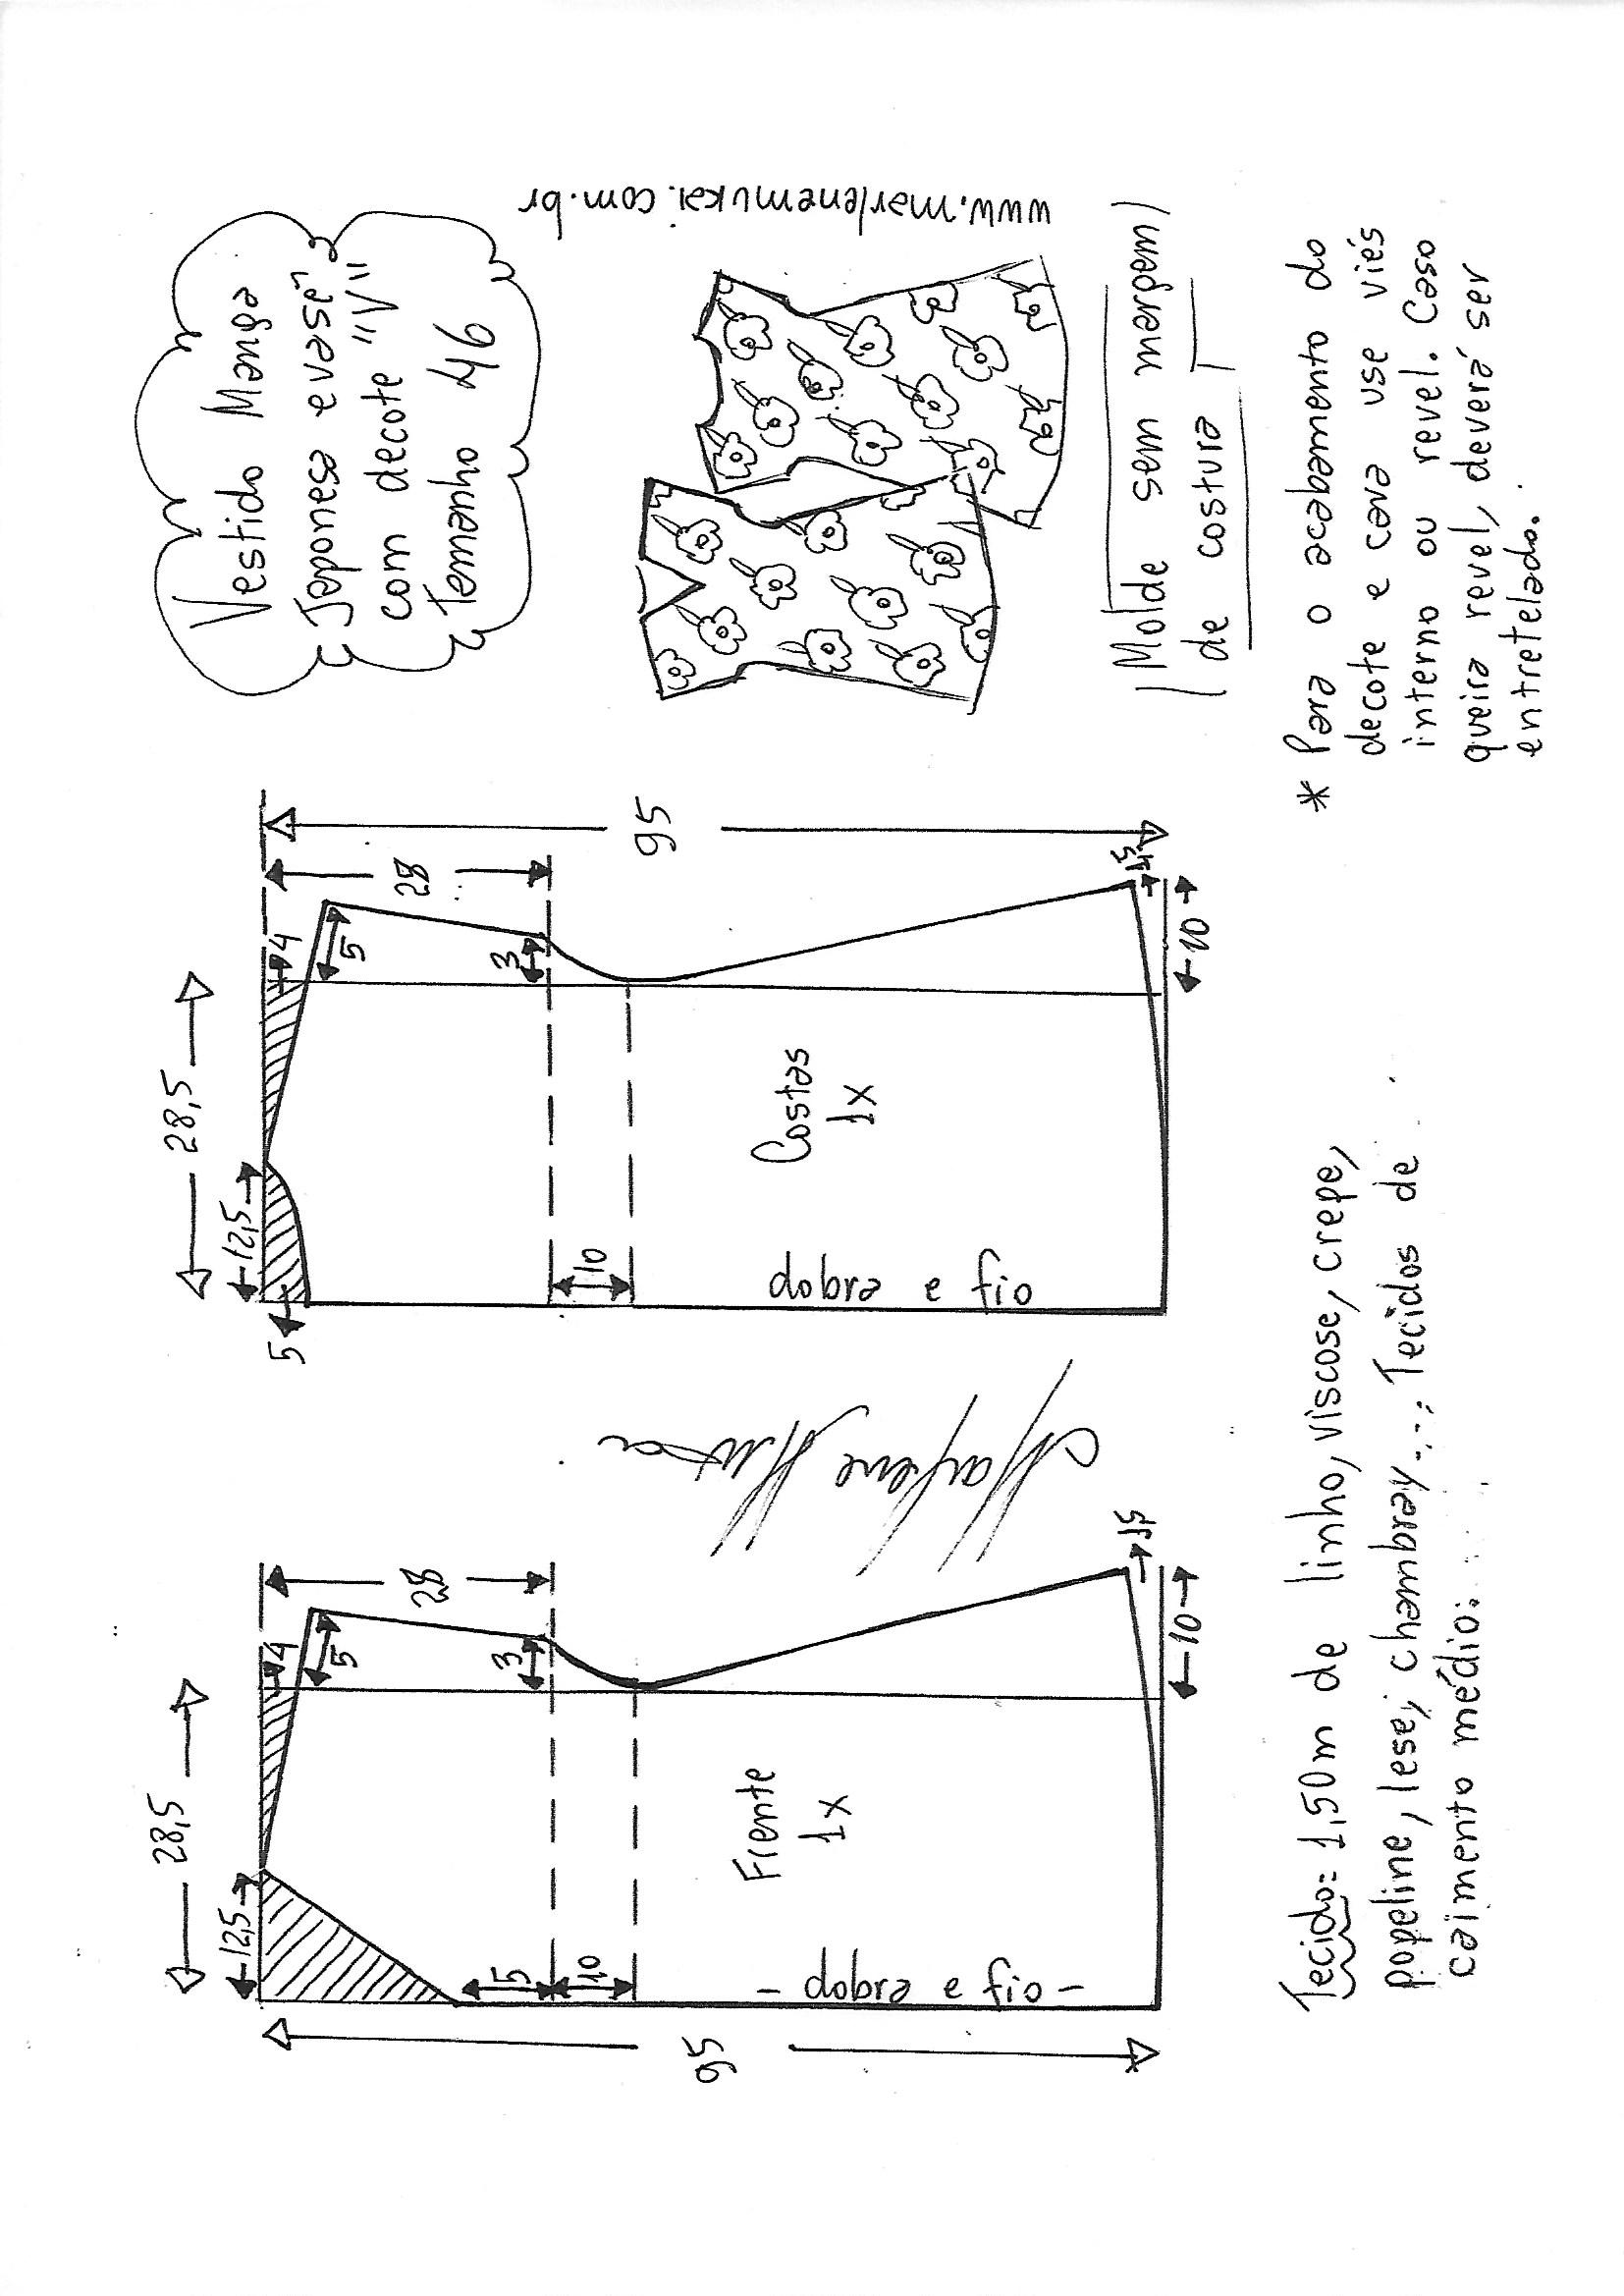 Vestido Manga
Japonesa evasê
com decote "V"
Tamanho 46
www.marlenemukai.com.br
Molde sem margem
de costura
* Para o acabamento do
decote e cava use viés
interno ou revel. Caso
queira revel, deverá ser
entretelado.
28,5
12,5
5
4
5
28
3
10
95
1,5
10
Costas
1x
dobra e fio
Marlene Mukai
28,5
12,5
4
5
28
3
5
10
95
1,5
10
Frente
1x
- dobra e fio -
Tecido: 1,50m de linho, viscose, crepe,
popeline, lese, chambray... Tecidos de
caimento médio.